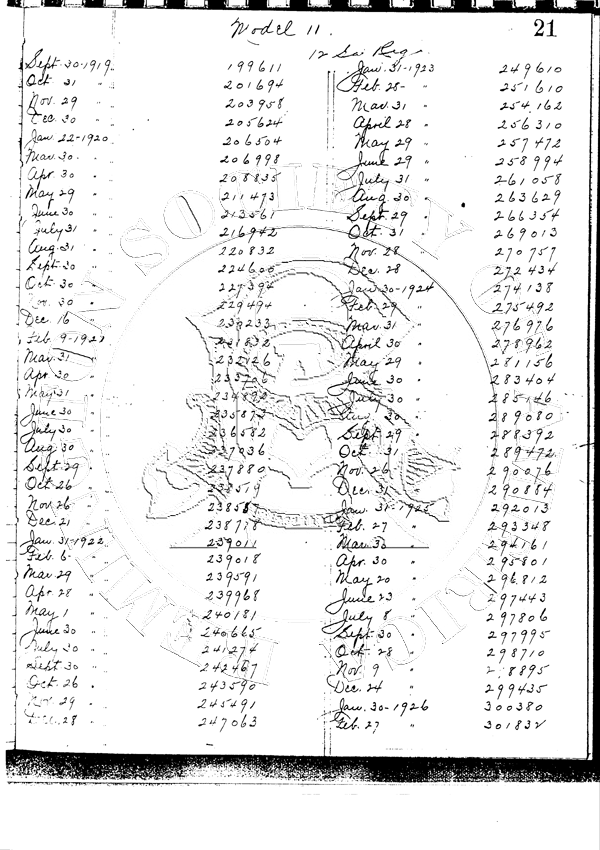 Model 11.
21
12 Ga Reg.
Sept. 30-1919 199611
Oct. 31 " 201694
Nov. 29 " 203958
Dec. 30 " 205624
Jan. 22-1920 206504
Mar. 30 " 206998
Apr. 30 " 208835
May 29 " 211473
June 30 " 213561
July 31 " 216942
Aug. 31 " 220832
Sept. 30 " 224600
Oct. 30 "
Nov. 30 " 229494
Dec. 16
Feb. 9-1921
Mar. 31 " 232126
Apr. 30 "
May 31 "
June 30 "
July 30 " 236582
Aug. 30 " 237036
Sept. 29 " 237880
Oct. 26 " 238519
Nov. 26 " 238587
Dec. 21 " 238718
Jan. 31-1922 239011
Feb. 6 " 239018
Mar. 29 " 239591
Apr. 28 " 239968
May 1 " 240181
June 30 " 240665
July 30 " 241274
Sept. 30 " 242467
Oct. 26 " 243590
Nov. 29 " 245491
Dec. 28 " 247063
Jan. 31-1923 249610
Feb. 28- " 251610
Mar. 31 " 254162
April 28 " 256310
May 29 " 257472
June 29 " 258994
July 31 " 261058
Aug. 30 " 263629
Sept. 29 " 266354
Oct. 31 " 269013
Nov. 28 " 270757
Dec. 28 " 272434
Jan. 30-1924 274138
Feb. 29 " 275492
Mar. 31 " 276976
April 30 " 278962
May 29 " 281156
June 30 " 283404
July 30 " 285146
Aug. 30 " 289080
Sept. 29 " 288392
Oct. 31 " 289472
Nov. 26 " 290076
Dec. 31 " 290884
Jan. 31-1925 292013
Feb. 27 " 293348
Mar. 30 " 294161
Apr. 30 " 295801
May 20 " 296812
June 23 " 297443
July 8 " 297806
Sept. 30 " 297995
Oct. 28 " 298710
Nov. 9 "
Dec. 24 " 299435
Jan. 30-1926 300380
Feb. 27 " 301832